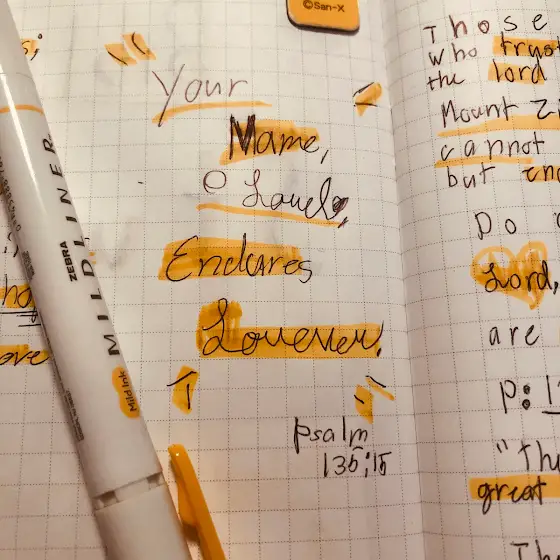 ©San-X
"Your
Name,
O Lord,
Endures
Forever!
"
Psalm
135:15
ZEBRA
MILDLINER
Mild Ink
ove
Those
who trust
the lord
Mount Z
cannot
but end
Do
Lord,
are
P:1
"Thy
great